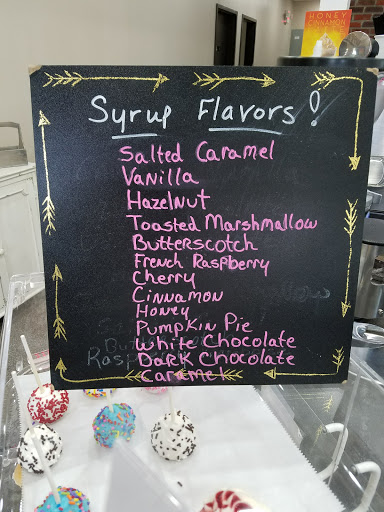 HONEY
CINNAMON
Syrup Flavors!
Salted Caramel
Vanilla
Hazelnut
Toasted Marshmallow
Butterscotch
French Raspberry
Cherry
Cinnamon
Honey
Pumpkin Pie
White Chocolate
Dark Chocolate
Caramel